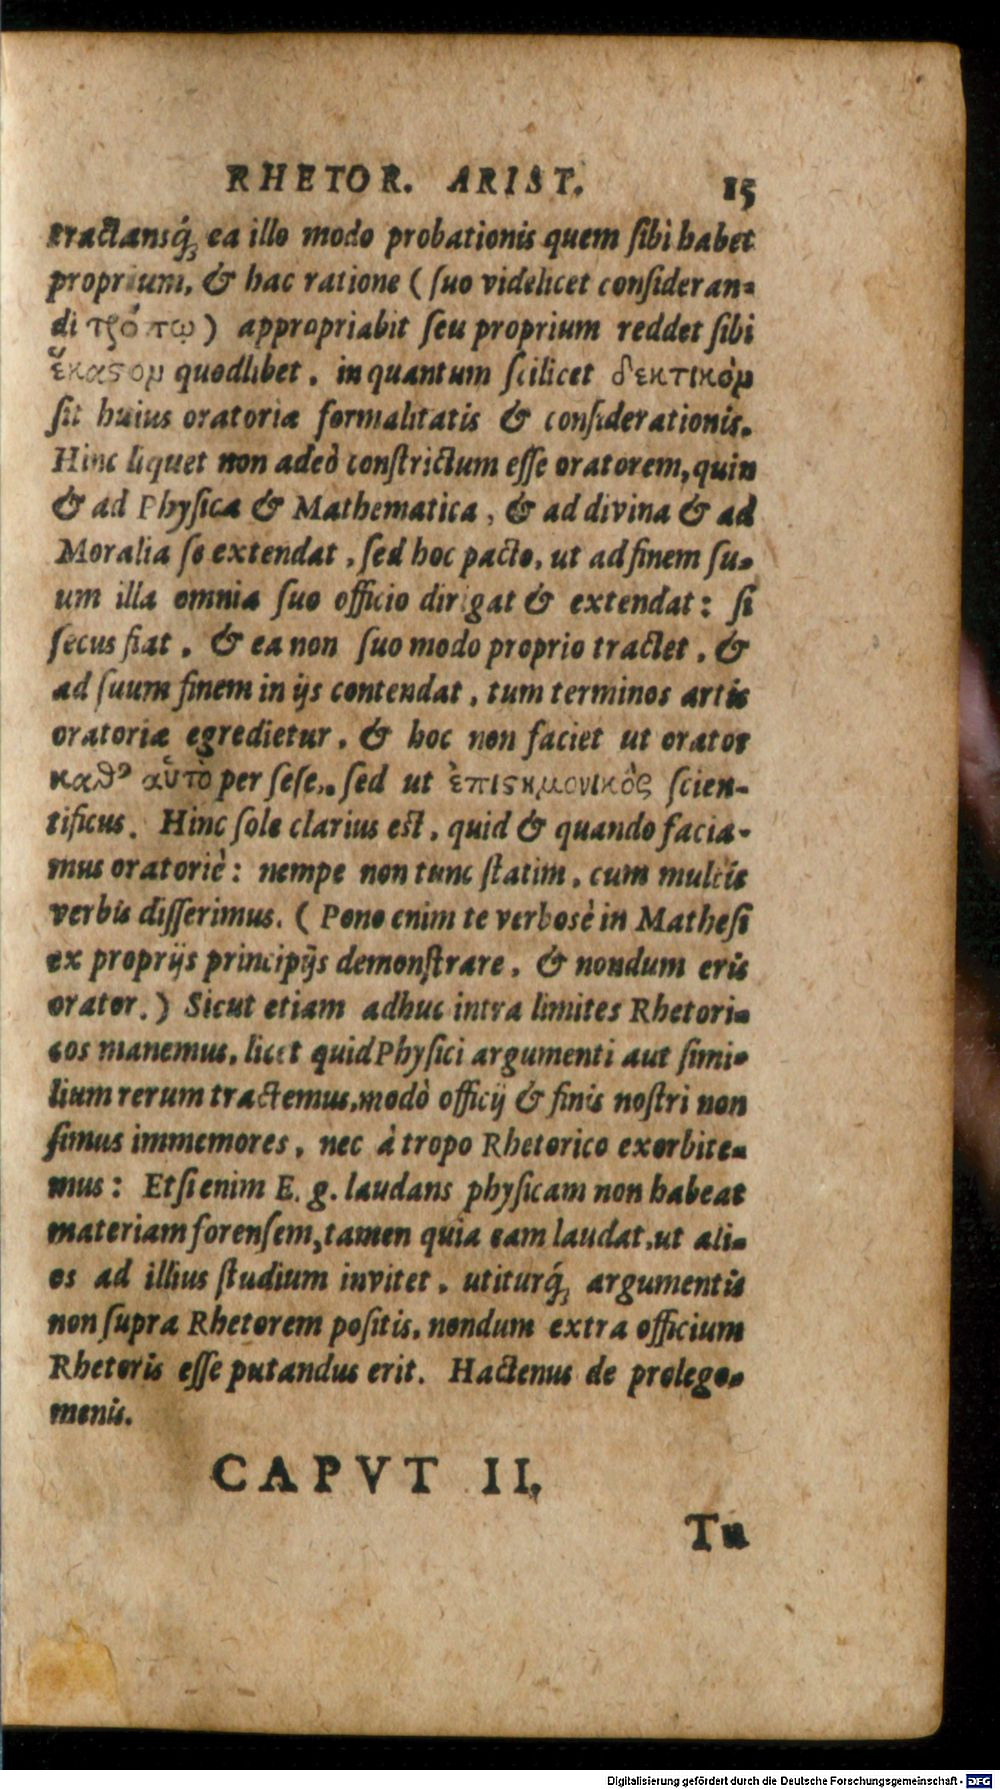 RHETOR. ARIST. 15
tractansq́; ea illo modo probationis quem ſibi habet
proprium, & hac ratione (ſuo videlicet conſideran-
di τρόπῳ) appropriabit ſeu proprium reddet ſibi
ἕκαστον quodlibet, in quantum ſcilicet δεκτικὸν
ſit huius oratoriæ formalitatis & conſiderationis.
Hinc liquet non adeò conſtrictum eſſe oratorem, quin
& ad Phyſica & Mathematica, & ad divina & ad
Moralia ſe extendat, ſed hoc pacto, ut ad finem ſu-
um illa omnia ſuo officio dirigat & extendat: ſi
ſecus fiat, & ea non ſuo modo proprio tractet, &
ad ſuum finem in ijs contendat, tum terminos artis
oratoriæ egredietur, & hoc non faciet ut orator
καθ᾽ αὑτὸ per ſeſe, ſed ut ἐπιστημονικὸς ſcien-
tificus. Hinc ſole clarius eſt, quid & quando facia-
mus oratoriè: nempe non tunc ſtatim, cum multis
verbis diſſerimus. (Pono enim te verbosè in Matheſi
ex proprijs principijs demonſtrare, & nondum eris
orator.) Sicut etiam adhuc intra limites Rhetori-
cos manemus, licet quid Phyſici argumenti aut ſimi-
lium rerum tractemus, modò officij & finis noſtri non
ſimus immemores, nec à tropo Rhetorico exorbite-
mus: Etſi enim E. g. laudans phyſicam non habeat
materiam forenſem, tamen quia eam laudat, ut ali-
os ad illius ſtudium invitet, utiturq́; argumentis
non ſupra Rhetorem poſitis, nondum extra officium
Rhetoris eſſe putandus erit. Hactenus de prolego-
menis.
CAPVT II.
Tu
Digitalisierung gefördert durch die Deutsche Forschungsgemeinschaft - DFG